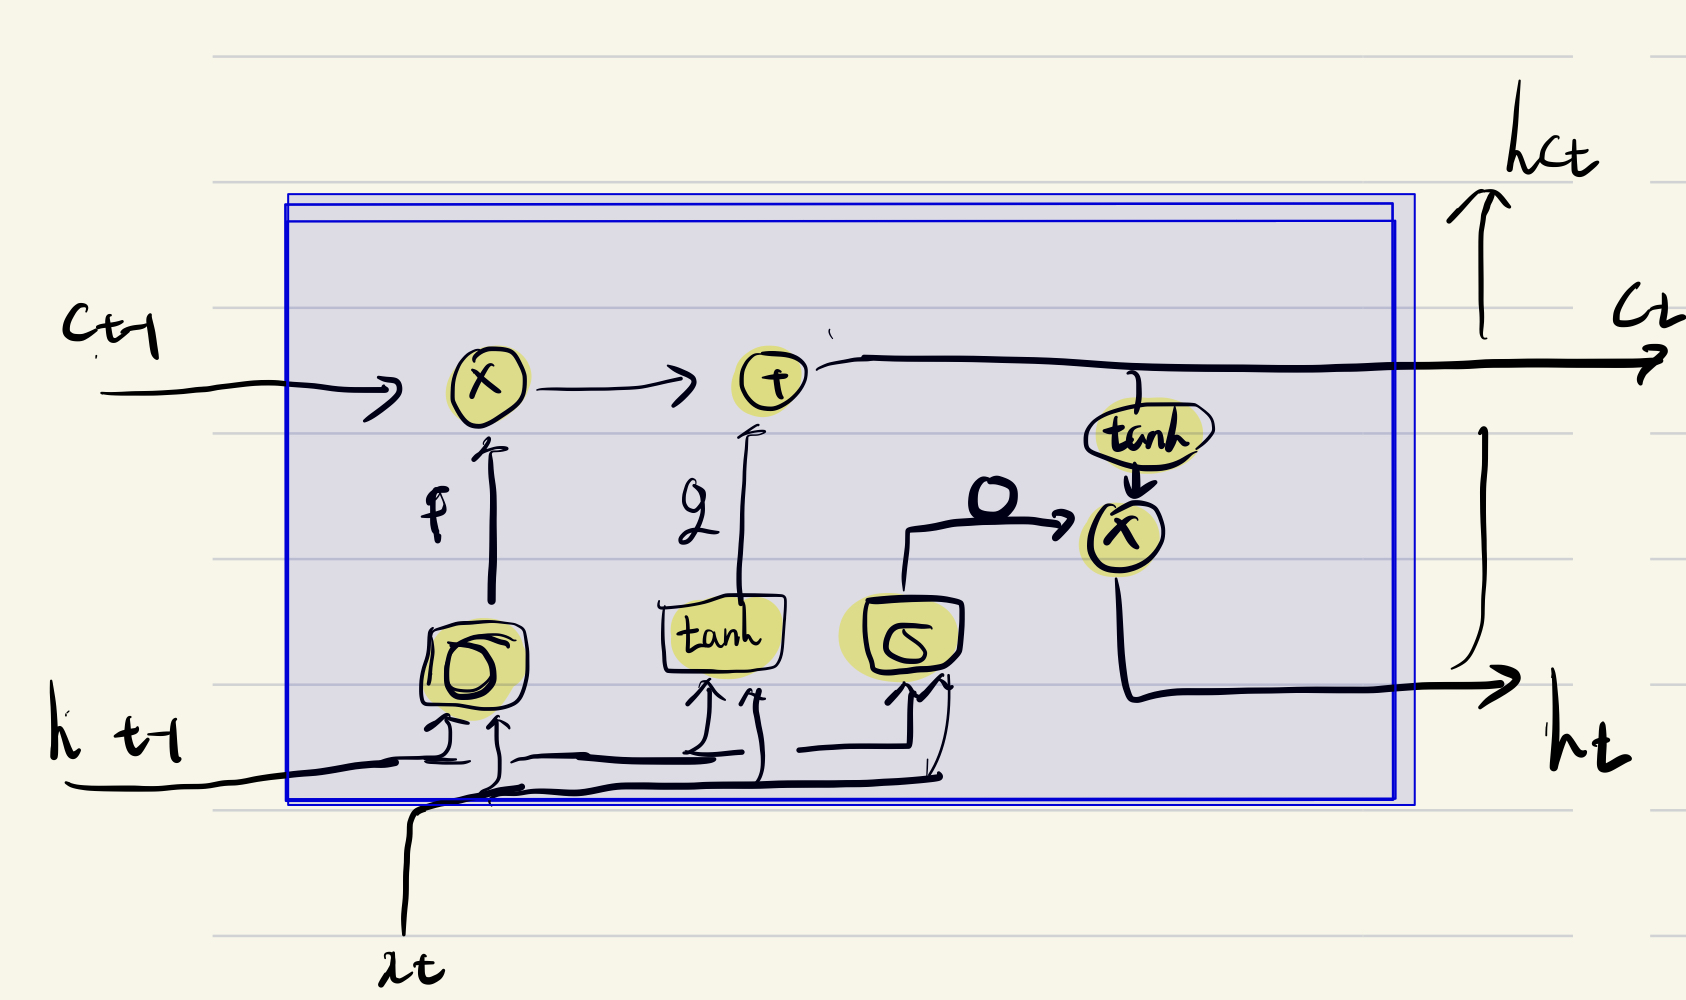 hct
Ct
Ct-1
x
+
tanh
f
g
o
x
σ
tanh
σ
h t-1
ht
xt